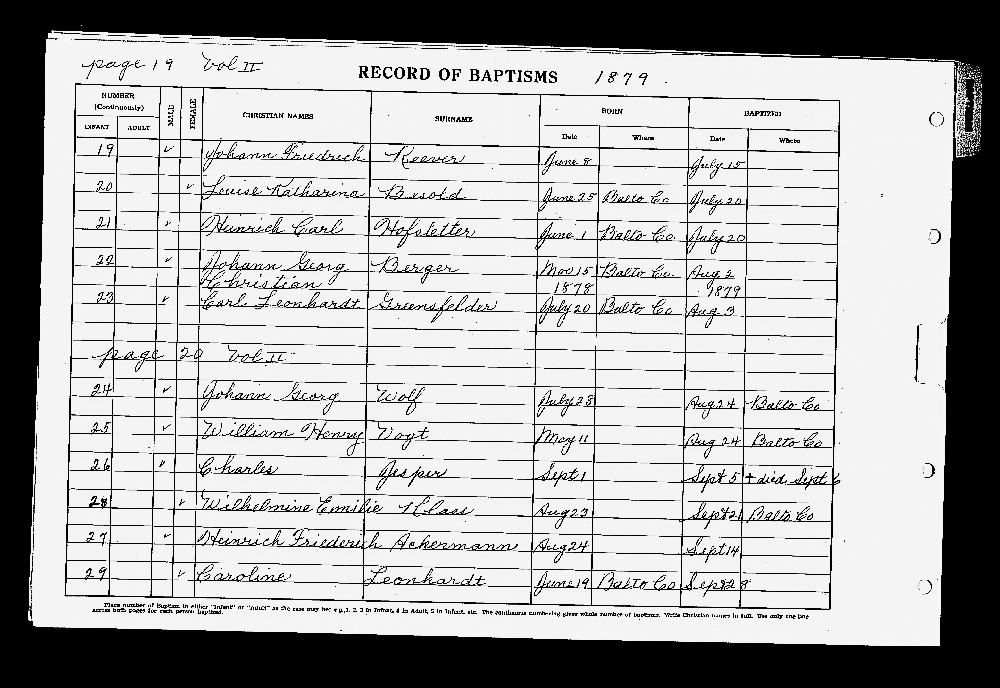 page 19 Vol II RECORD OF BAPTISMS 1879
NUMBER (Continuously) MALE FEMALE CHRISTIAN NAMES SURNAME BORN BAPTIZED
INFANT ADULT Date Where Date Where
19 ✓ Johann Friedrich Reever June 8 July 15
20 ✓ Louise Katharina Besold June 25 Balto Co July 20
21 ✓ Heinrich Carl Hofstetter June 1 Balto Co July 20
22 ✓ Johann Georg Berger Nov 15 Balto Co. Aug 2
Christian 1878 1879
23 ✓ Carl Leonhardt Greensfelder July 20 Balto Co Aug 3
page 20 Vol II
24 ✓ Johann Georg Wolf July 28 Aug 24 Balto Co
25 ✓ William Henry Vogt May 11 Aug 24 Balto Co
26 ✓ Charles Jesper Sept 1 Sept 5 + died Sept 6
28 ✓ Wilhelmine Emilie Klaes Aug 23 Sept 21 Balto Co
27 ✓ Heinrich Friederich Ackermann Aug 24 Sept 14
29 ✓ Caroline Leonhardt June 19 Balto Co Sept 28
Place number of Baptism in either "Infant" or "Adult" as the case may be: e.g., 1, 2, 3 in Infant, 4 in Adult, 5 in Infant, etc. The continuous numbering gives whole number of baptisms. Write Christian names in full. Use only one line
across both pages for each person baptized.